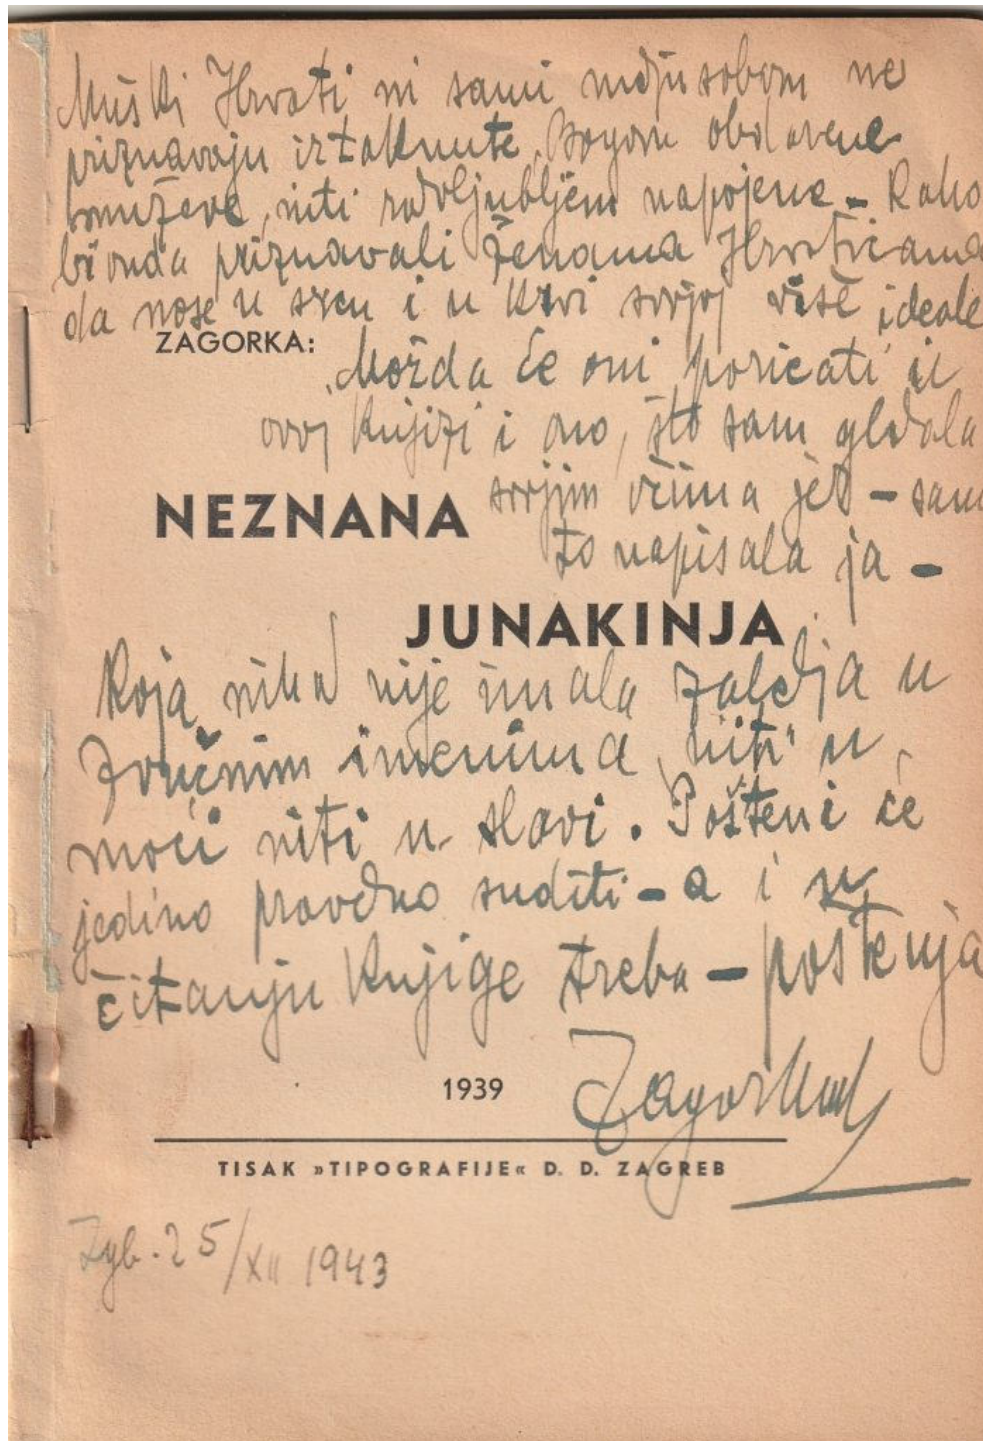 Muški Hrvati ni sami medju sobom ne
priznavaju iztaknute, Bogom obdarene
muževe, niti rodoljubljem napojene - Kako
bi onda priznavali ženama Hrvaticama
da nose u srcu i u krvi svojoj više ideale
ZAGORKA:
Možda će oni poricati u
ovoj knjizi i ono, što sam gledala
NEZNANA
svojim očima jer - sam
to napisala ja -
JUNAKINJA
Koja nikad nije imala zaledja u
zvučnim imenima, niti u
moći niti u slavi. Pošteni će
jedino pravedno suditi - a i u
čitanju knjige treba - poštenja
1939
Zagorka
TISAK »TIPOGRAFIJE« D. D. ZAGREB
Zgb. 25/XII 1943